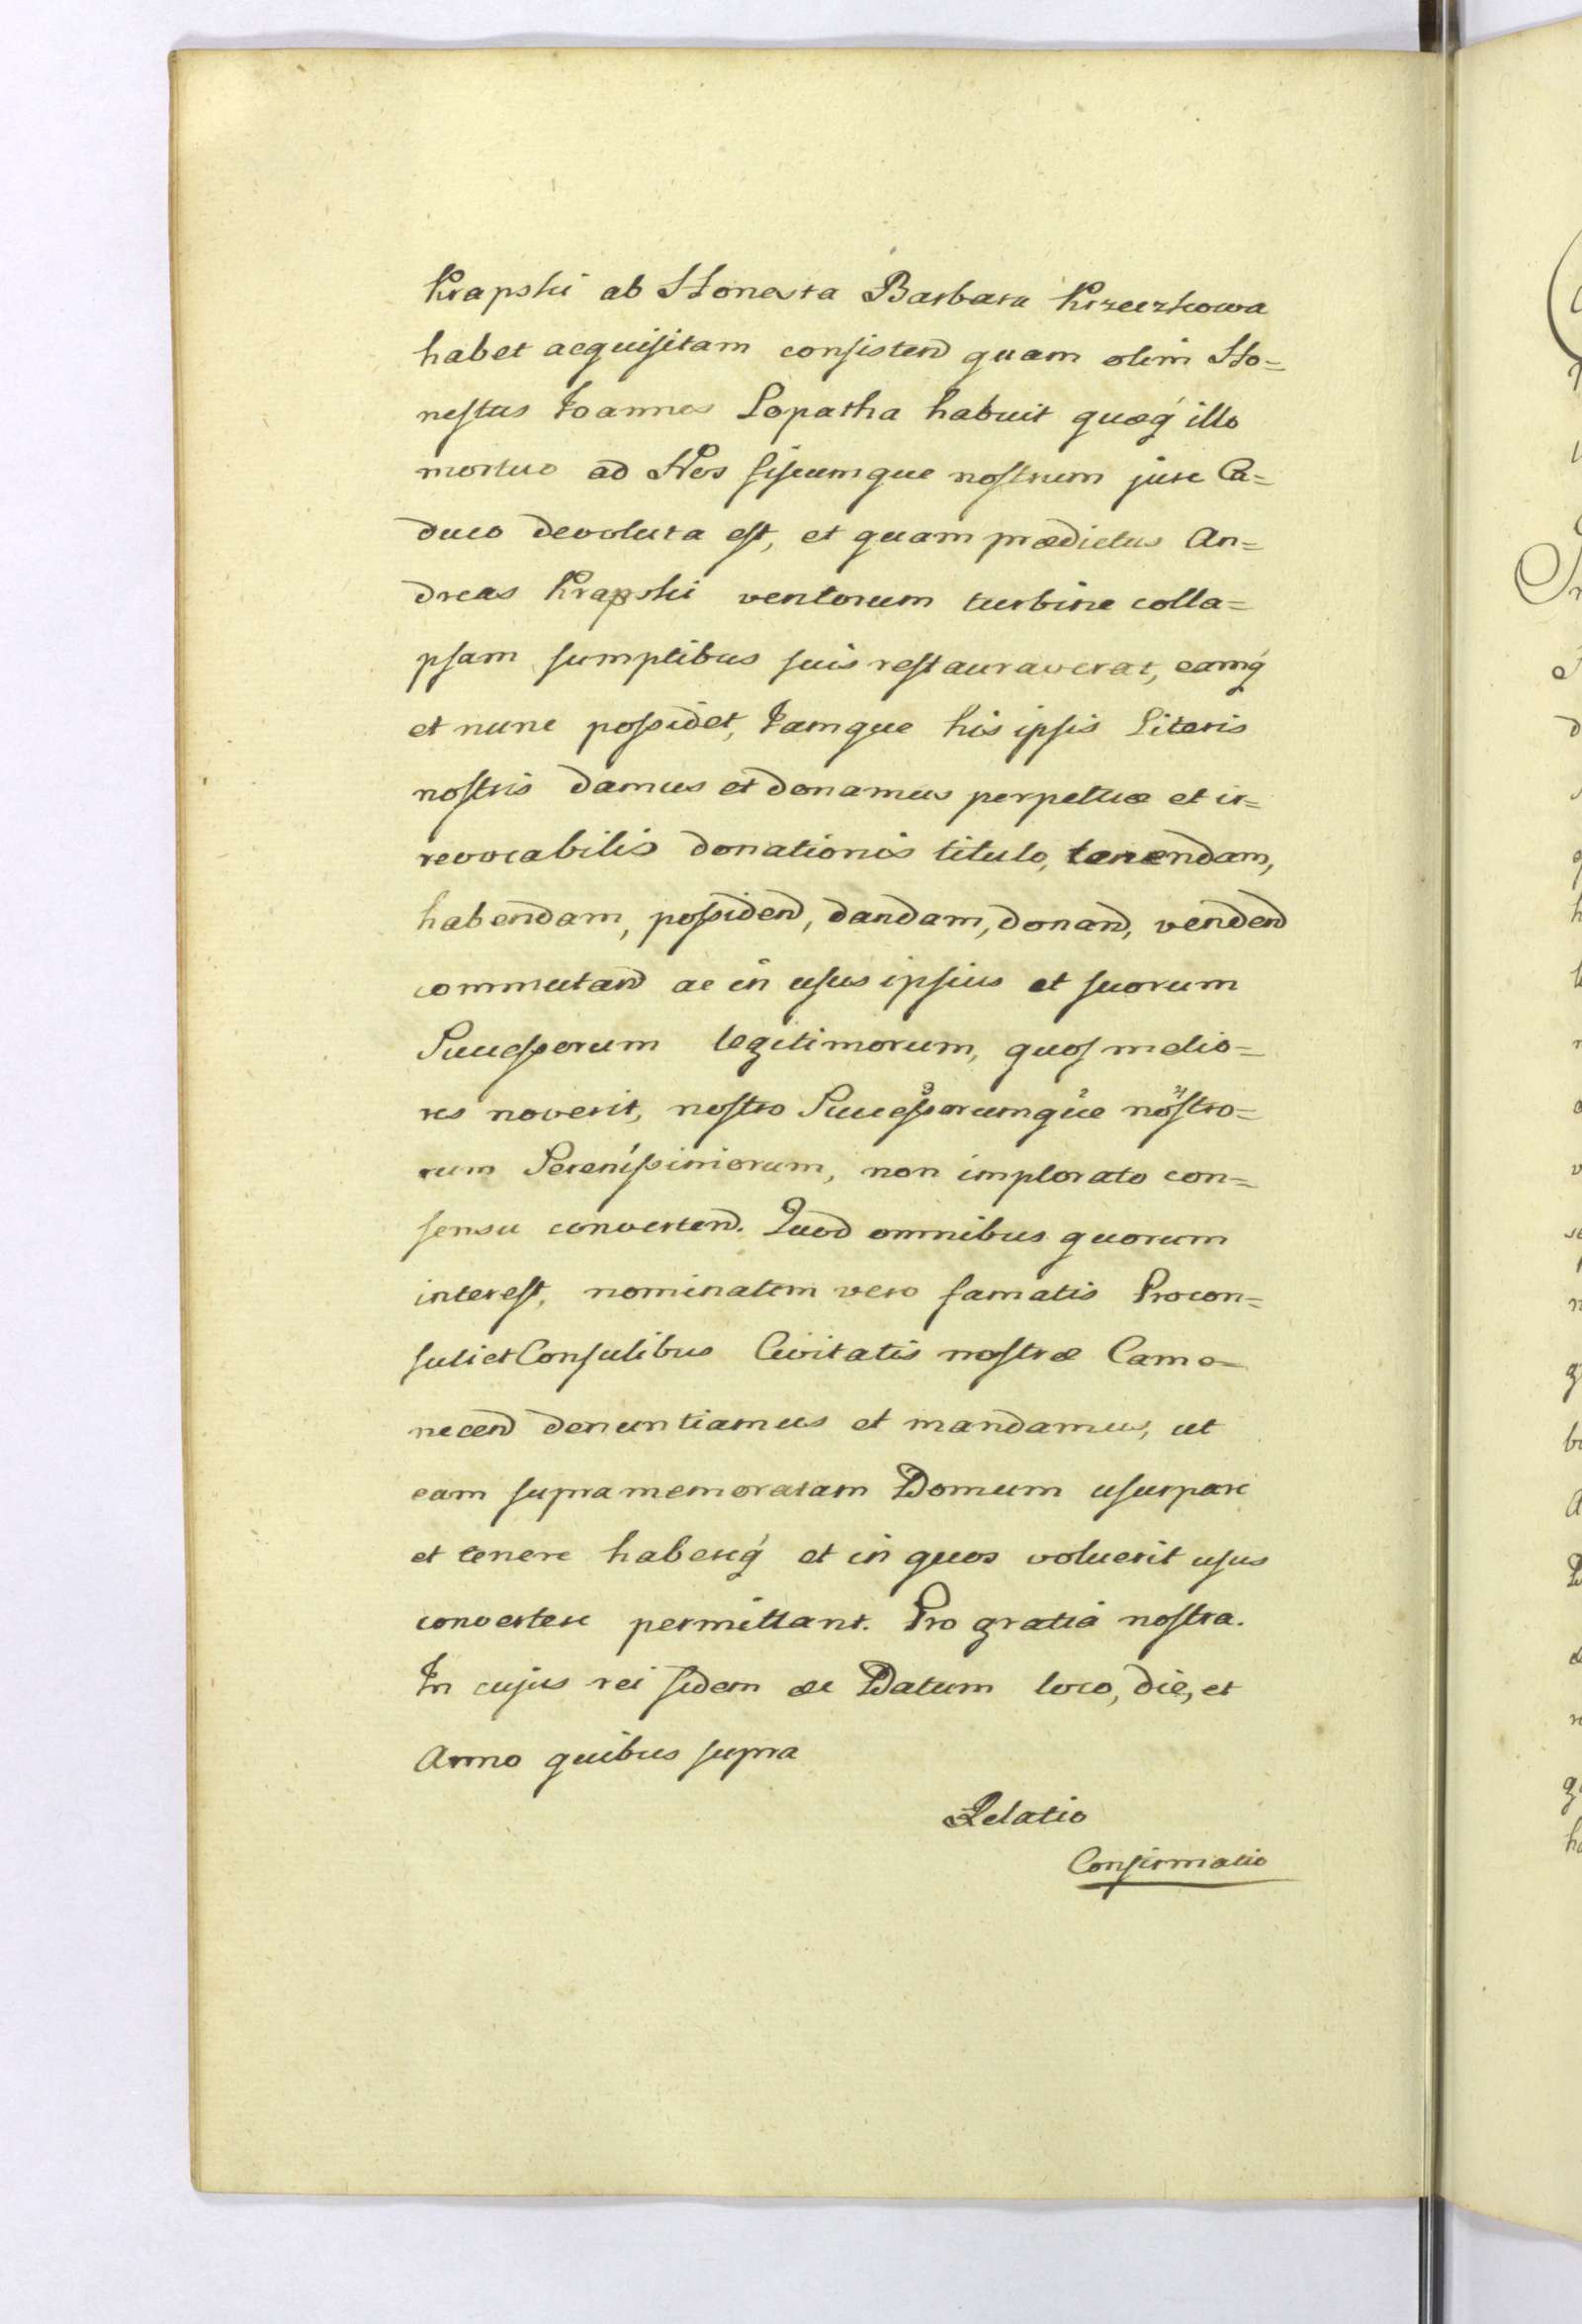 Krapski ab Honesta Barbara Krzeczkowa
habet acquisitam consistend quam olim Ho=
nestus Joannes Lopatka habuit quaeq́ illo
mortuo ad Nos fiscumque nostrum jure Ca=
duco devoluta est, et quam praedictus An=
dreas Krapski ventorum turbine colla=
psam sumptibus suis restauraverat, eamq́
et nunc possidet, Jamque his ipsis Literis
nostris damus et donamus perpetuae et ir=
revocabilis donationis titulo, tenendam,
habendam, possidend, dandam, donand, vendend
commutand ac in usus ipsius et suorum
Successorum legitimorum, quos melio=
res noverit, nostro Successorumque nostro=
rum Serenissimorum, non implorato con=
sensu convertend. Quod omnibus quorum
interest, nominatim vero famatis Procon=
suli et Consulibus Civitatis nostrae Camo=
necend denuntiamus et mandamus, ut
eam supra memoratam Domum usurpare
et tenere habereq́ et in quos voluerit usus
convertere permittant. Pro gratia nostra.
In cujus rei fidem &c Datum loco, die, et
Anno quibus supra
Relatio
Confirmatio